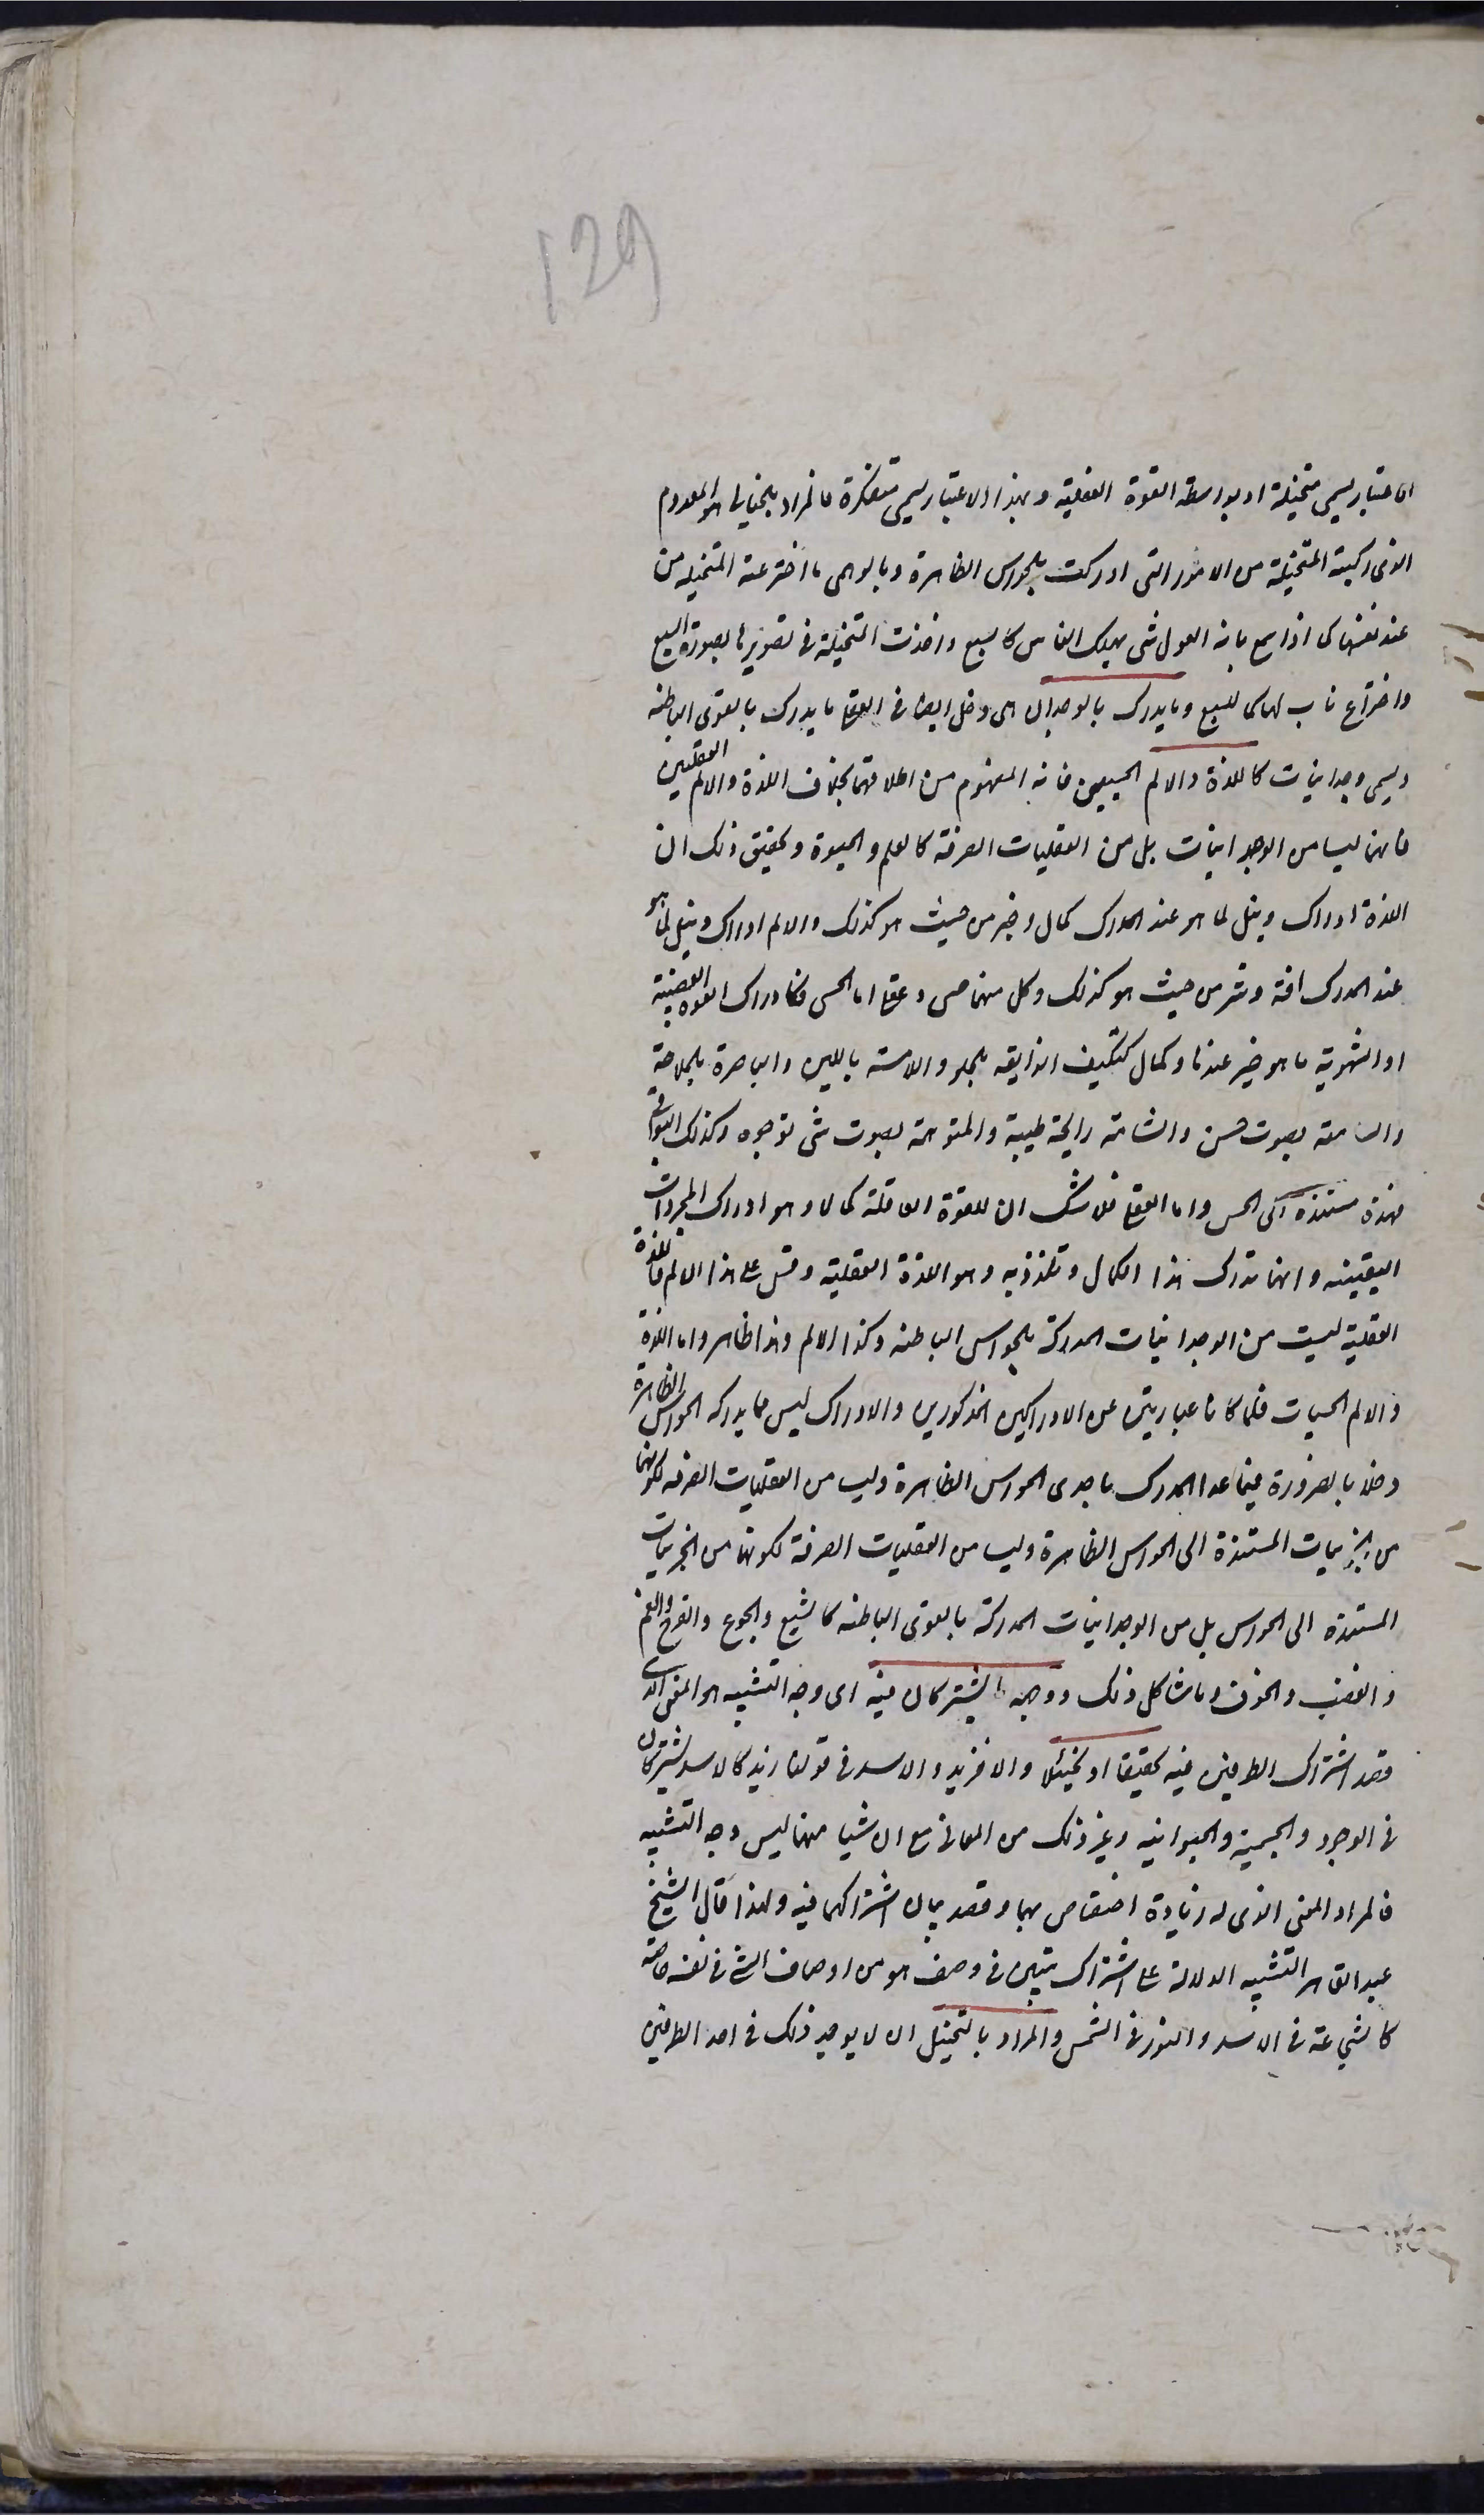 129
الاعتبار يسمى متخيلة او بواسطة القوة العقلية وبهذا الاعتبار يسمى متفكرة فالمراد بالخيالى هو المعدوم
الذى ركبته المتخيلة من الامور التى ادركت بالحواس الظاهرة وبالوهمى ما اخترعته المتخيله من
عند نفسها كما اذا سمع بانه الغول شئ يهلك الناس كالسبع واخذت المتخيلة فى تصويرها بصورة السبع
واختراع ناب لها كما للسبع وما يدرك بالوجدان اى ودخل ايضا فى العقلى ما يدرك بالقوى الباطنه
ويسمى وجدانيات كاللذة والالم الحسيين فانه المفهوم من اطلاقهما بخلاف اللذة والالم العقليين
فانهما ليسا من الوجدانيات بل من العقليات الصرفة كالعلم والحيوة وتحقيق ذلك ان
اللذة ادراك ونيل لما هو عند المدرك كمال وخير من حيث هو كذلك والالم ادراك ونيل لما هو
عند المدرك افة وشر من حيث هو كذلك وكل منهما حسى وعقلى اما الحسى فكادراك القوه الغضبية
او الشهوية ما هو خير عندها وكمال كتكيف الذايقه بالحلو واللامسة باللين والباصرة بالملاحة
والسامعة بصوت حسن والشامة رايحة طيبة والمتوهمة بصوت شئ توجوه وكذلك البواقى
فهذة مستندة الى الحس واما العقلى فلا شك ان للقوة العاقلة كمالا وهو ادراك المجردات
اليقينيه وانها تدرك هذا الكمال وتلتذ به وهو اللذة العقلية وقس على هذا الالم فاللذة
العقلية ليست من الوجدانيات المدركة بالحواس الباطنه وكذا الالم وهذا ظاهر واما اللذة
والالم الحسيات فلما كانا عباريتين عن الادراكين المذكورين والادراك ليس مما يدركه الحواس الظاهرة
دخلا بالضرورة فيما عدا المدرك باحدى الحواس الظاهرة وليسا من العقليات الصرفه لكونهما
من الجزييات المستندة الى الحواس الظاهرة وليسا من العقليات الصرفة لكونهما من الجزييات
المستندة الى الحواس بل من الوجدانيات المدركة بالقوى الباطنه كالشبع والجوع والفرح والغم
والغضب والخوف وما شاكل ذلك ووجهه ما يشتركان فيه اى وجه التشبيه هو المعنى الذى
قصد اشتراك الطرفين فيه تحقيقا او تخييلا والا فزيد والاسد فى قولنا زيد كالاسد يشتركان
فى الوجود والجسمية والحيوانيه وغير ذلك من المعانى مع ان شيا منها ليس وجه التشبيه
فالمراد المعنى الذى له زيادة اختصاص بهما وقصد بيان اشتراكهما فيه ولهذا قال الشيخ
عبد القاهر التشبيه الدلالة على اشتراك شيئين فى وصف هو من اوصاف الشئ فى نفسه خاصة
كالشجاعة فى الاسد والنور فى الشمس والمراد بالتخييل ان لا يوجد ذلك فى احد الطرفين